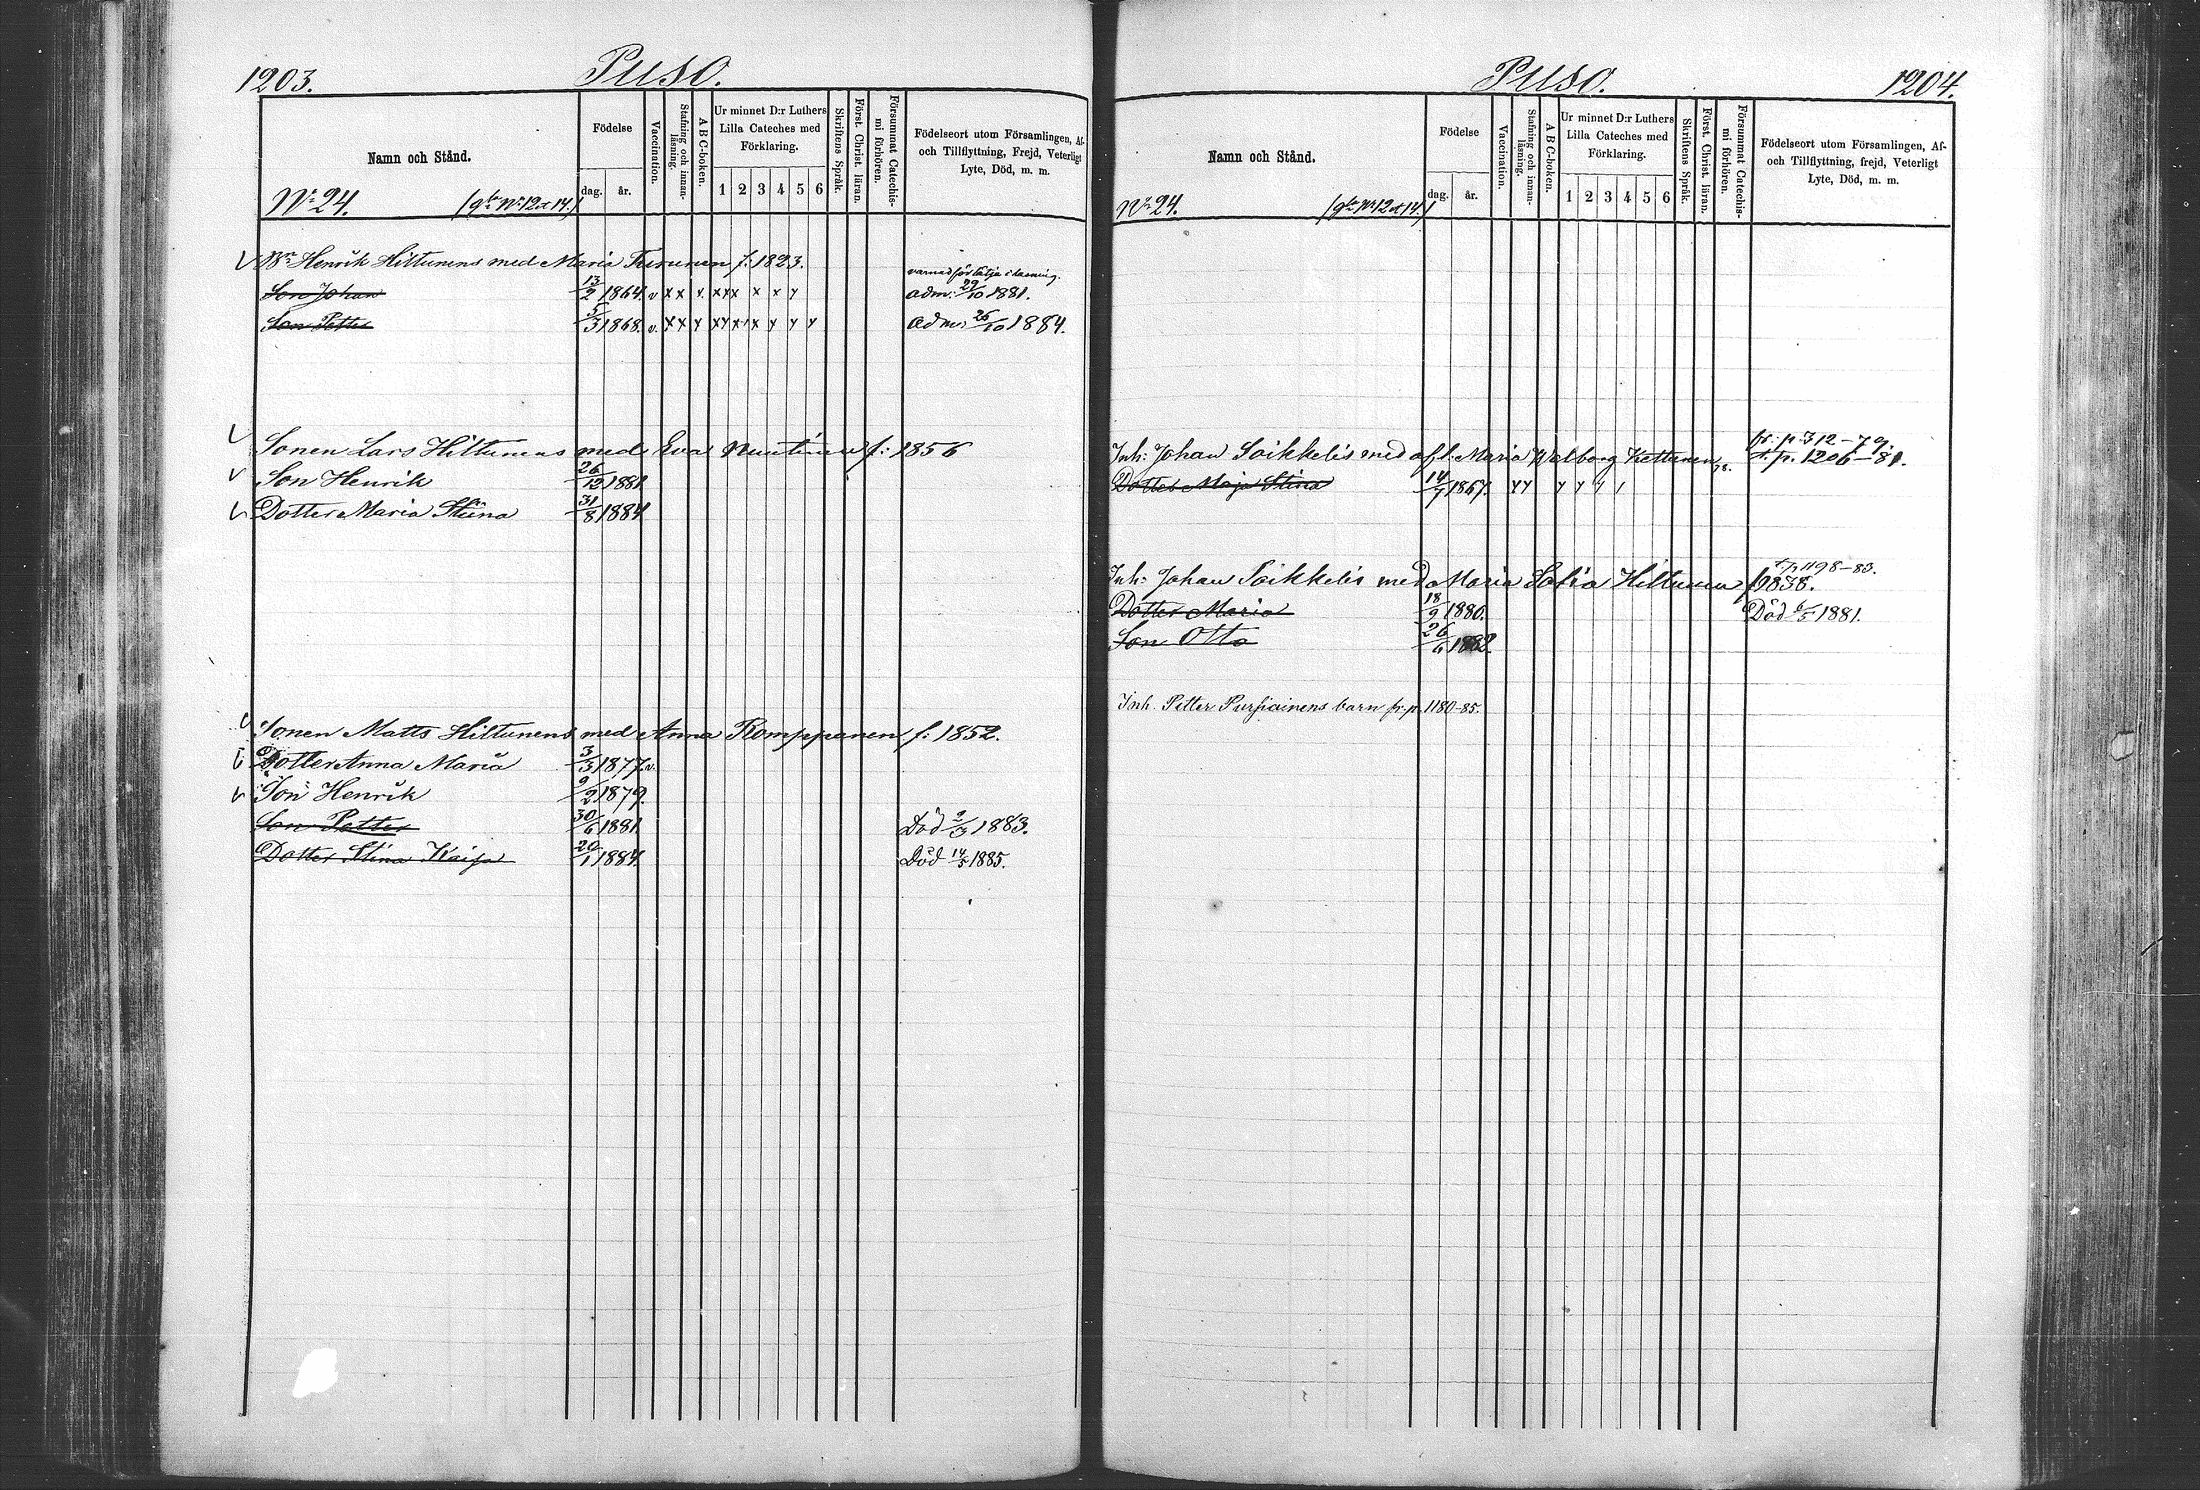 1203.
Puso.
Namn och Stånd.
Födelse
dag.
år.
Vaccination.
Stafning och innan-
läsning.
A B C-boken.
Ur minnet D:r Luthers
Lilla Cateches med
Förklaring.
1 2 3 4 5 6
Skriftens Språk.
Först. Christ. läran.
Försummat Catechis-
mi förhören.
Födelseort utom Församlingen, Af-
och Tillflyttning, Frejd, Veterligt
Lyte, Död, m. m.
No 24. (gla No 12 et 14.)
Henrik Hiltunens med Maria Turunen f. 1823.
varnad för lättja i läsning.
Son Johan 13/2 1864. v x x v. x x x x x y adm: 29/10 1881.
Son Petter 5/3 1868. v. x x y x y x x y y y adm: 26/10 1884.
Sonen Lars Hiltunens med Eva f: 1856
Son Henrik 26/12 1881
Dotter Maria Stina 31/8 1884
Sonen Matts Hiltunens med Anna Romppanen f. 1852.
Dotter Anna Maria 3/3 1877. v.
Son Henrik 9/2 1879.
Son Petter 30/6 1881 Död 2/3 1883.
Dotter Stina Kaisa 20/1 1884. Död 14/5 1885.
Puso.
1204.
Namn och Stånd.
Födelse
dag.
år.
Vaccination.
Stafning och innan-
läsning.
A B C-boken.
Ur minnet D:r Luthers
Lilla Cateches med
Förklaring.
1 2 3 4 5 6
Skriftens Språk.
Först. Christ. läran.
Försummat Catechis-
mi förhören.
Födelseort utom Församlingen, Af-
och Tillflyttning, frejd, Veterligt
Lyte, Död, m. m.
No 24. (gla No 12 et 14.)
fr. p. 312-79.
Inh: Johan Soikkelis med afl: Maria Walborg Kettunen t. p. 1206-81.
Dotter Maja Stina 14/7 1867. y y y y y
t. p. 1198-83.
Inh: Johan Soikkelis med Maria Sofia Hiltunen 1838.
Dotter Maria 18/9 1880. Död 6/5 1881.
Son Otto 26/6 1882.
Inh. Petter Purpiainens barn fr. p. 1180-85.